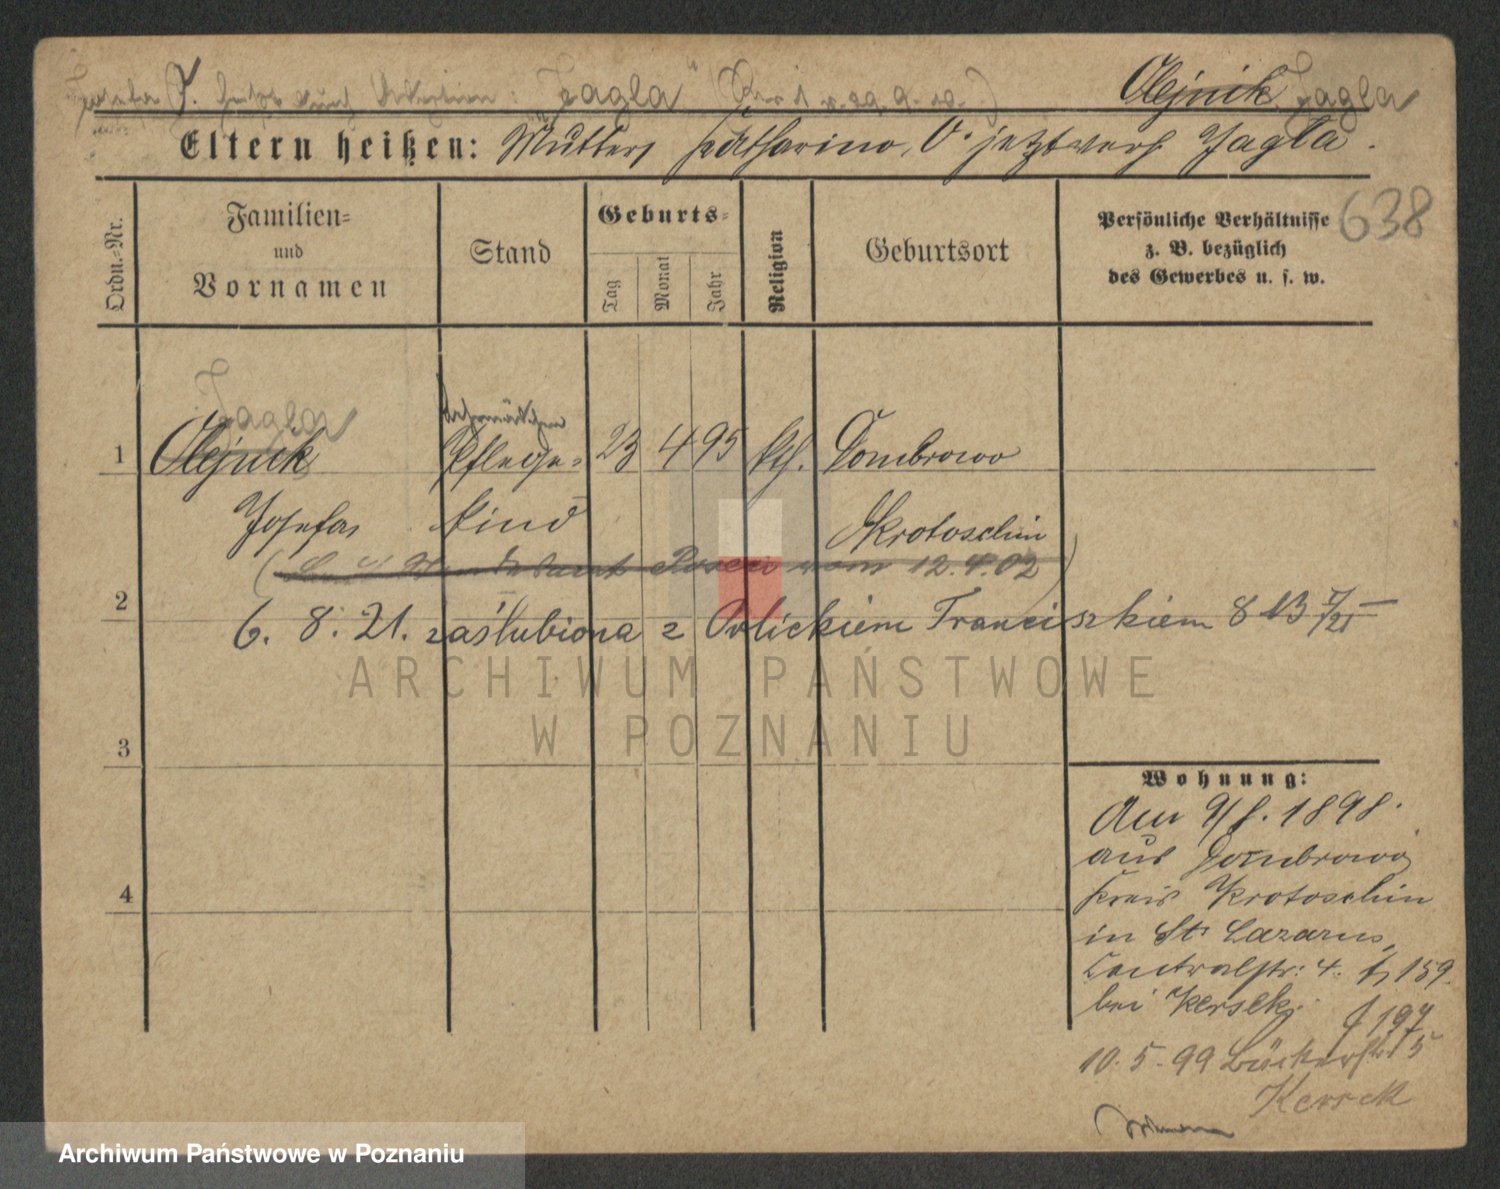 Josefa J. : Jagla" Olejnik Jagla
Eltern heißen: Mutter Katharina O. jetzt verh Jagla.
638
Ordn.-Nr.
Familien- und Vornamen
Stand
Geburts-
Tag
Monat
Jahr
Religion
Geburtsort
Persönliche Verhältnisse
z. B. bezüglich
des Gewerbes u. s. w.
Jagla
1 Olejnik Pflege- 23 4 95 kth. Dombrowo
Josefa kind Krotoschin
Posen vom 12.4.02
2
6. 8. 21. zaślubiona z Orlickiem Franciszkiem
3
Wohnung:
Am 9/8. 1898.
aus Dombrowo
4
Kreis Krotoschin
in St. Lazarus,
Centralstr: 4. 159.
bei Kersek
197
10. 5. 99 Bäckerstr 15
Kersek
ARCHIWUM PAŃSTWOWE
W POZNANIU
Archiwum Państwowe w Poznaniu